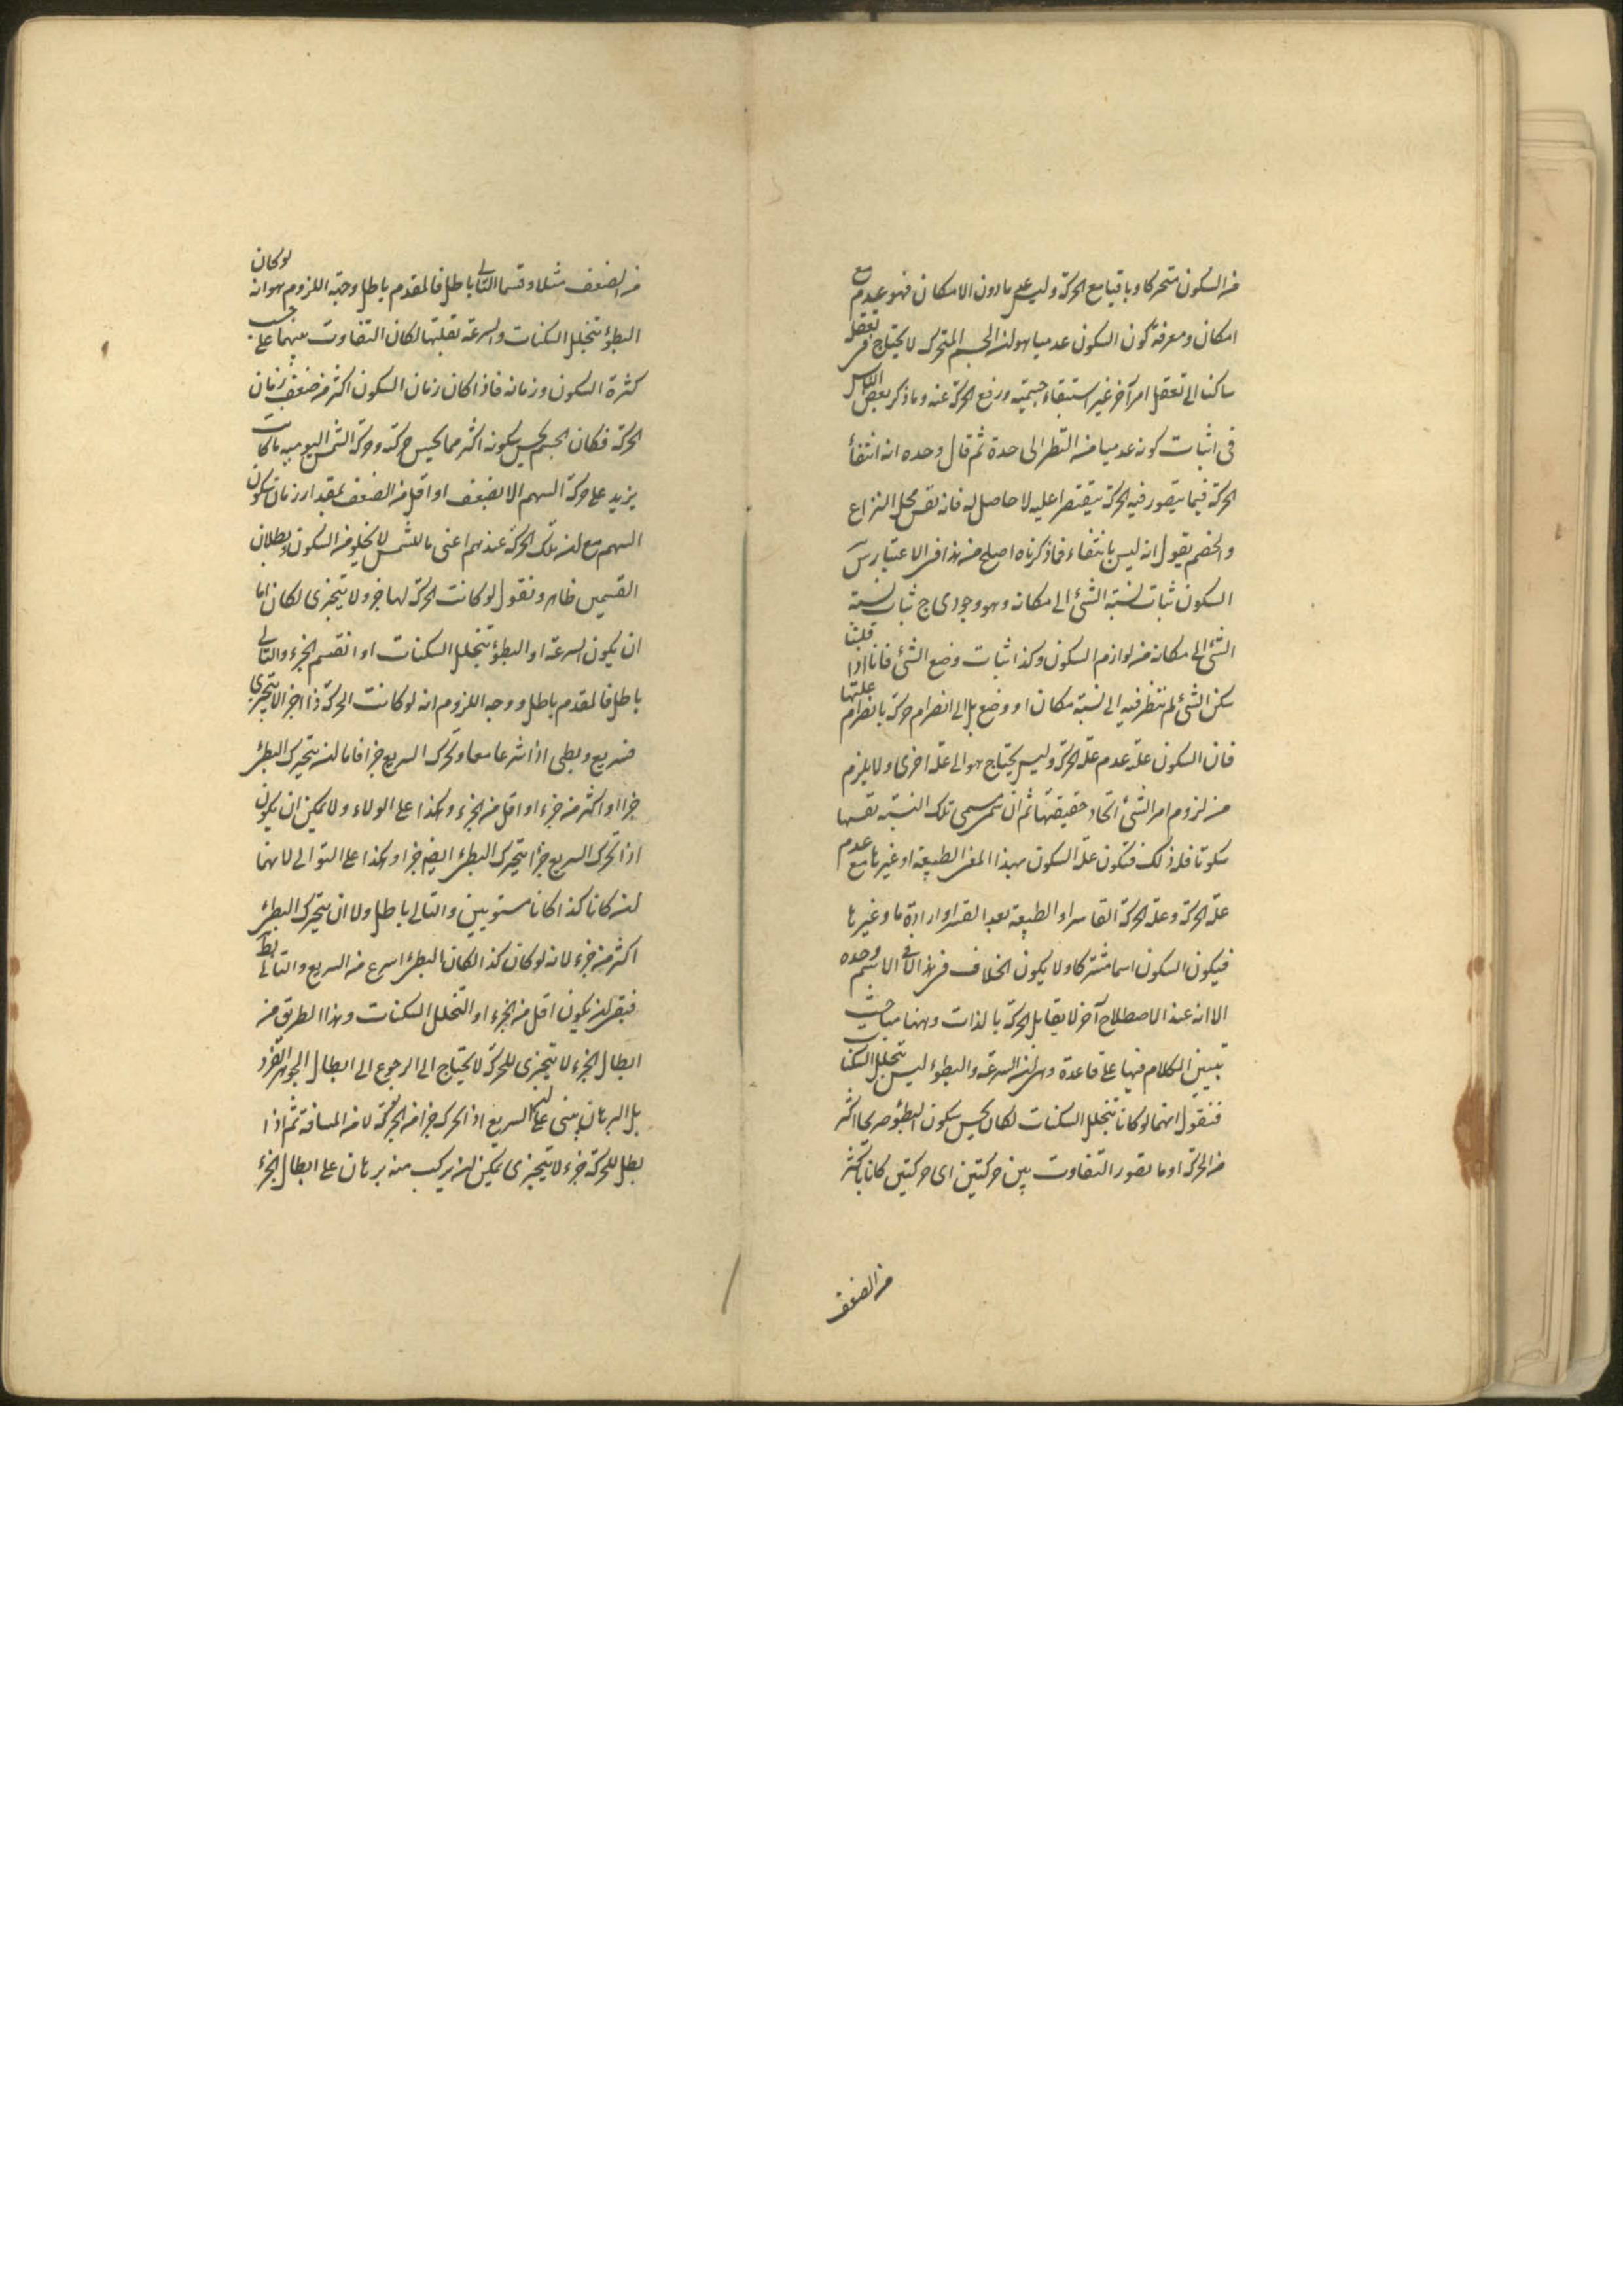 من السكون متحركا وباقيا مع الحركة وليس على ما دون الامكان فهو عدم مع
امكان ومعرفة كون السكون عدميا هو ان الجسم المتحرك لا يحتاج في تعقل
ساكنا الى تعقل امر آخر غير استبقاء جسميته ورفع الحركة عنه وما ذكر بعض الناس
فى اثبات كونه عدميا من النظر الى حدة ثم قال وحده انه انتفأ
الحركة فيما يتصور فيه الحركة مقتصرا عليه لا حاصل له فانه نفس محل النزاع
والخصم يقول انه ليس بانتفاء فما ذكرناه اصلح من هذا فى الاعتبار
السكون ثبات نسبة الشئ الى مكانه وهو وجودى ج ثبات نسبة
الشئ الى مكانه من لوازم السكون وكذا ثبات وضع الشئ فانا اذا قلنا
سكن الشئ لم ننظر فيه الى نسبة مكان او وضع بل الى انصرام حركة بانصرام علتها
فان السكون علته عدم علة الحركة وليس يحتاج هو الى علة اخرى ولا يلزم
من لزوم امر الشئ اتحاد حقيقتهما ثم ان سمى تلك النسبة نفسها
سكونا فله ذلك فتكون علة السكون بهذا المعنى الطبيعة او غيرها مع عدم
علة الحركة وعلة الحركة القاسر او الطبيعة بعد القسر او ارادة ما وغيرها
فيكون السكون اسما مشتركا ولا يكون الخلاف فى هذا الا فى الاسم وحده
الا انه عند الاصطلاح آخر لا يقابل الحركة بالذات وههنا مباحث
تبيين الكلام فيها على قاعدة وهى ان السرعة والبطؤ ليس بتخلل السكنات
فنقول انهما لو كانا بتخلل السكنات لكان يحس سكون البطؤ صريحا اكثر
من الحركة او ما تصور التفاوت بين حركتين اى حركتين كانا باكثر
من الضعف
من الضعف مثلا وقسما التالى باطل فالمقدم باطل وجه اللزوم هو انه لو كان
البطؤ بتخلل السكنات والسرعة بقلتها لكان التفاوت بينهما على حسب
كثرة السكون وزمانه فاذا كان زمان السكون اكثر من ضعف زمان
الحركة فكان الجسم يحس سكونه اكثر مما يحس حركته وحركة الشمس اليومية ما كانت
يزيد على حركة السهم الا بضعف او اقل من الضعف بمقدار زمان سكون
السهم مع ان تلك الحركة عندهم اعنى ما للشمس لا يخلو من السكون وبطلان
القسمين ظاهر ونقول لو كانت الحركة لها جزء لا يتجزى لكان اما
ان يكون السرعة او البطؤ بتخلل السكنات او انقسم الجزء والتالى
باطل فالمقدم باطل ووجه اللزوم انه لو كانت الحركة ذا اجزا لا يتجزى
فسريع وبطى اذا شرعا معا وتحرك السريع جزا فاما ان يتحرك البطئ
جزا او اكثر من جزء او اقل من الجزء وهكذا على الولاء ولا يمكن ان يكون
اذا تحرك السريع جزا يتحرك البطئ ايضا جزا وهكذا على التوالى لانهما
ان كانا كذا كانا مستويين والتالى باطل ولا ان يتحرك البطئ
اكثر من جزء لانه لو كان كذا لكان البطئ اسرع من السريع والتالى بط
فبقى ان يكون اقل من الجزء او التخلل السكنات وهذا الطريق من
ابطال الجزء لا يتجزى للحركة لا يحتاج الى الرجوع الى ابطال الجوهر الفرد
بل البرهان يبنى على ان السريع اذا تحرك جزا من الحركة لا من المسافة ثم اذا
بطل للحركة جزء لا يتجزى يمكن ان يركب منه برهان على ابطال الجزء